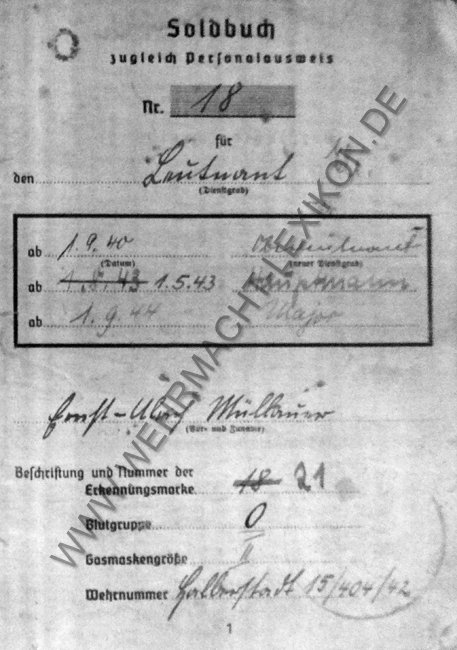 Soldbuch
zugleich Personalausweis
Nr. 18
für
den Leutnant
(Dienstgrad)
ab 1.9.40 Oberleutnant
(Datum) (neuer Dienstgrad)
ab 1.8.43 1.5.43 Hauptmann
ab 1.9.44 Major
Ernst-Ulrich Müllauer
(Vor- und Zuname)
Beschriftung und Nummer der
Erkennungsmarke 18 21
Blutgruppe O
Gasmaskengröße II
Wehrnummer Halberstadt 15/404/42
1
WWW.WEHRMACHT-LEXIKON.DE